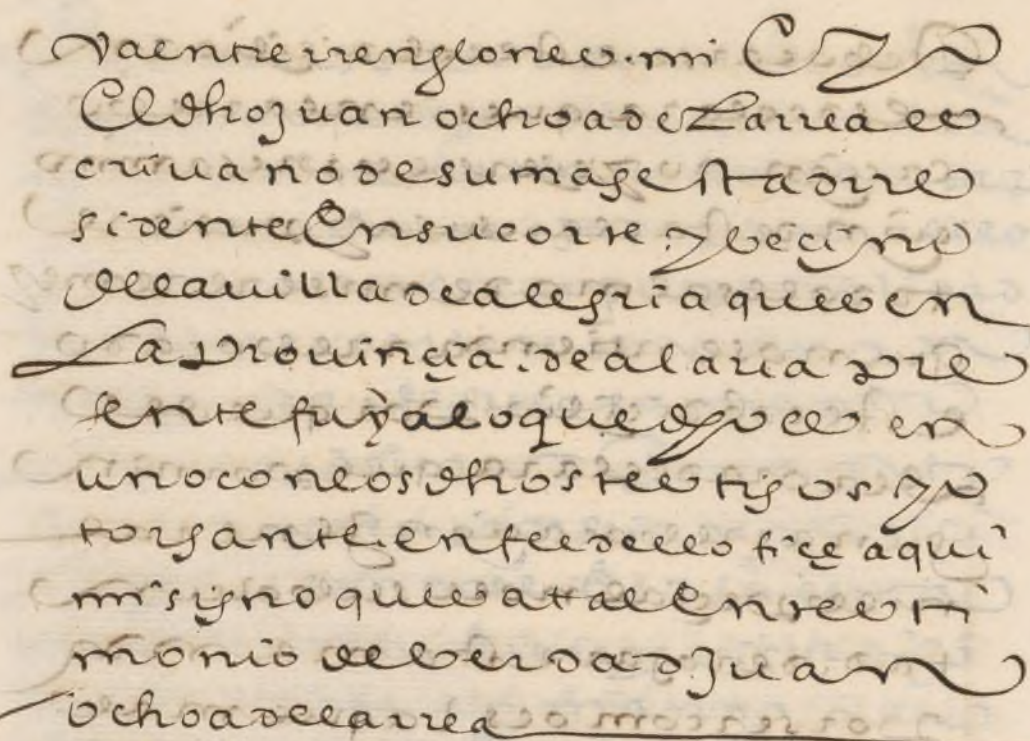 va entre renglones. mi E yo
El dho Juan ochoa de Larrea es
criuano de su magestad rre
sidente En su corte. y becino
de la uilla de alegria que es en
La Prouinçia. de alaua Pre
sente fuy a lo que dho es en
uno con los dhos testigos y o
torgante. en fee de ello fiçe aqui
mi signo que es a tal En testi
monio de berdad Juan
ochoa de larrea